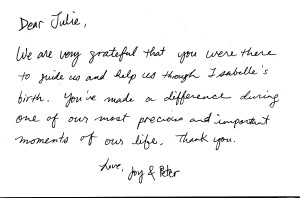 Dear Julie,
We are very grateful that you were there
to guide us and help us though Isabelle's
birth. You've made a difference during
one of our most precious and important
moments of our life. Thank you.
Love, Joy & Peter